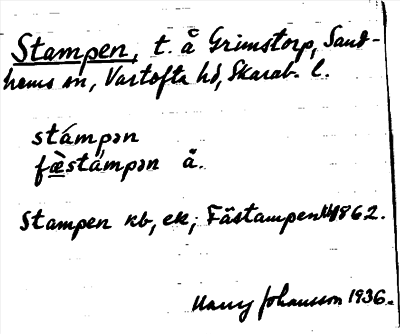 Stampen, t. å Grimstorp, Sand-
hems sn, Vartofta hd, Skarab. l.
stámpən
fæ̀stámpən ä.
Stampen kb, ek; Fästampen 1862.
Harry Johansson 1936.